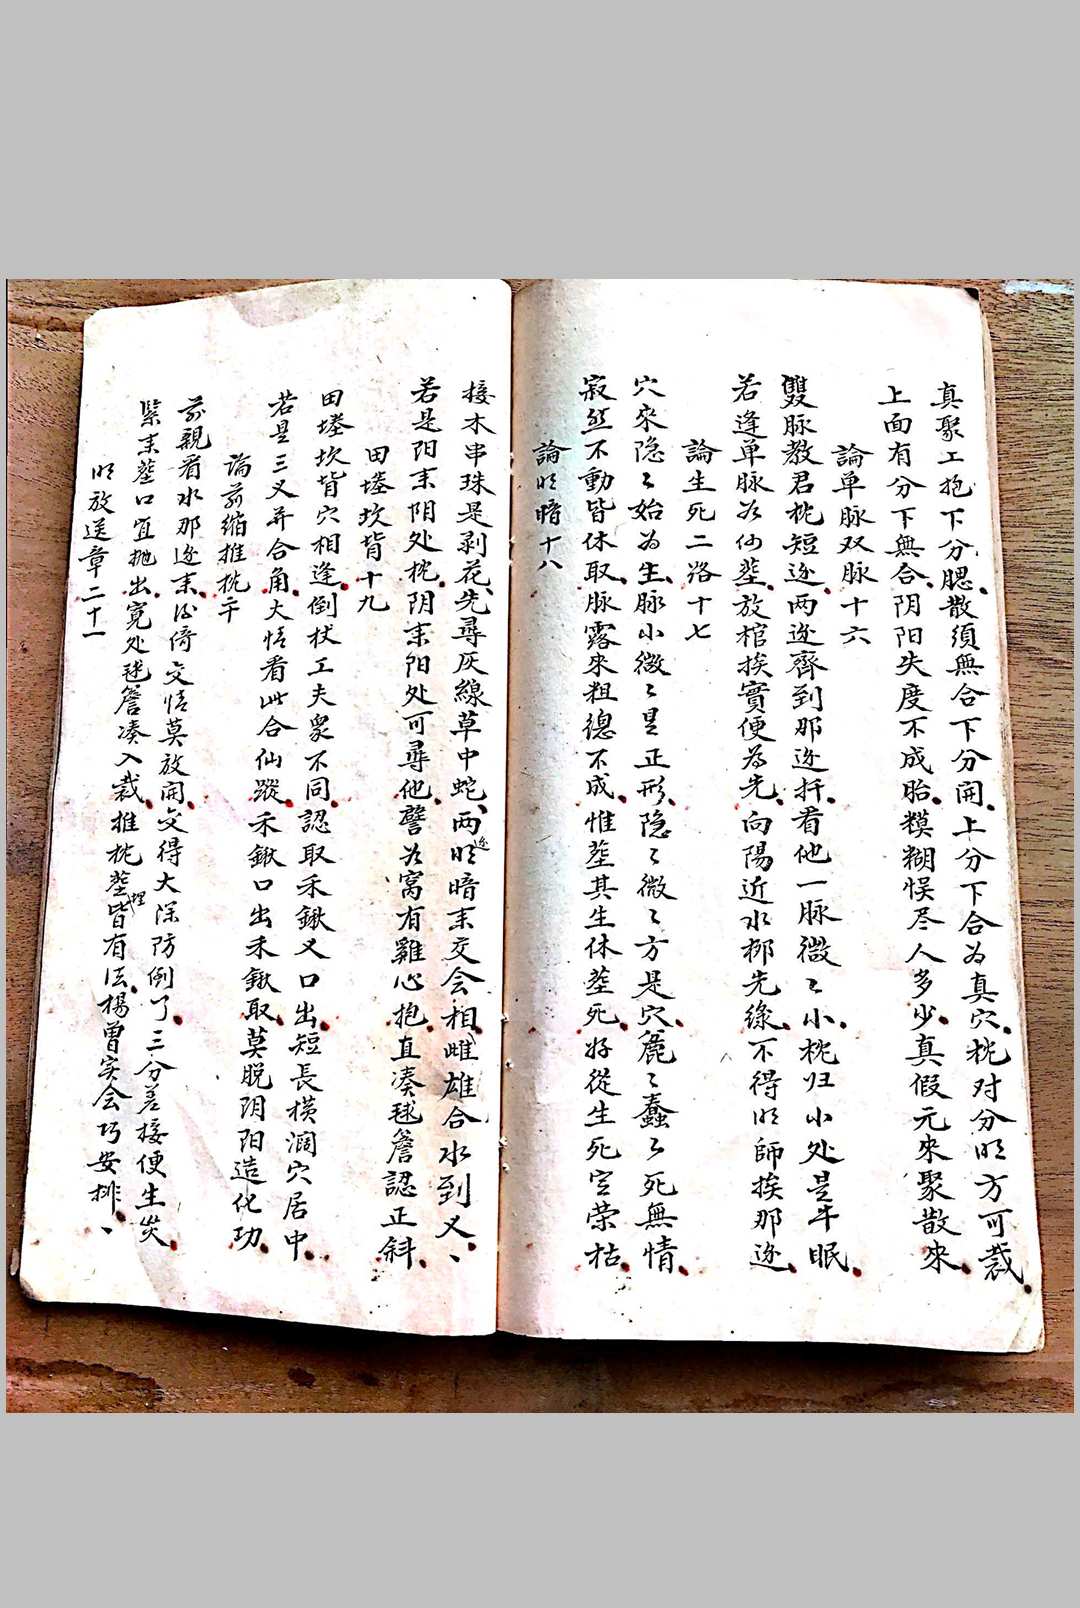 真聚工抱下分腮散須無合下分開上分下合为真穴枕对分明方可裁
上面有分下無合阴阳失度不成胎糢糊悮尽人多少真假元來聚散來
論单脉双脉十六
雙脉教君枕短边两边齊到那边扦看他一脉微々小枕归小处是牛眠
若逢单脉为何塟放棺挨實便為先向陽近水挪先缘不得明師挨那边
論生死二路十七
穴來隐々始为生脉小微々是正形隐々微々方是穴麁々蠢々死無情
寂然不動皆休取脉露來粗總不成惟塟其生休塟死好從生死定荣枯
論明暗十八
接木串珠是剥花先尋灰線草中蛇两边明暗来交会相雌雄合水到乂
若是阳来阴处枕阴来阳处可尋他譬为窩有雞心抱直凑毬簷認正斜
田塍坎背十九
田塍坎背穴相逢倒杖工夫衆不同認取禾鍬乂口出短長横濶穴居中
若是三乂并合角大情看此合仙蹤禾鍬口出禾鍬取莫脱阴阳造化功
論前缩推枕二十
前親看水那边来后倚交情莫放開交得大深防倒了三分差接便生災
緊来塟口宜抛出寬处毬簷凑入裁推枕塟埋皆有法楊曾实会巧安排
明放送章二十一